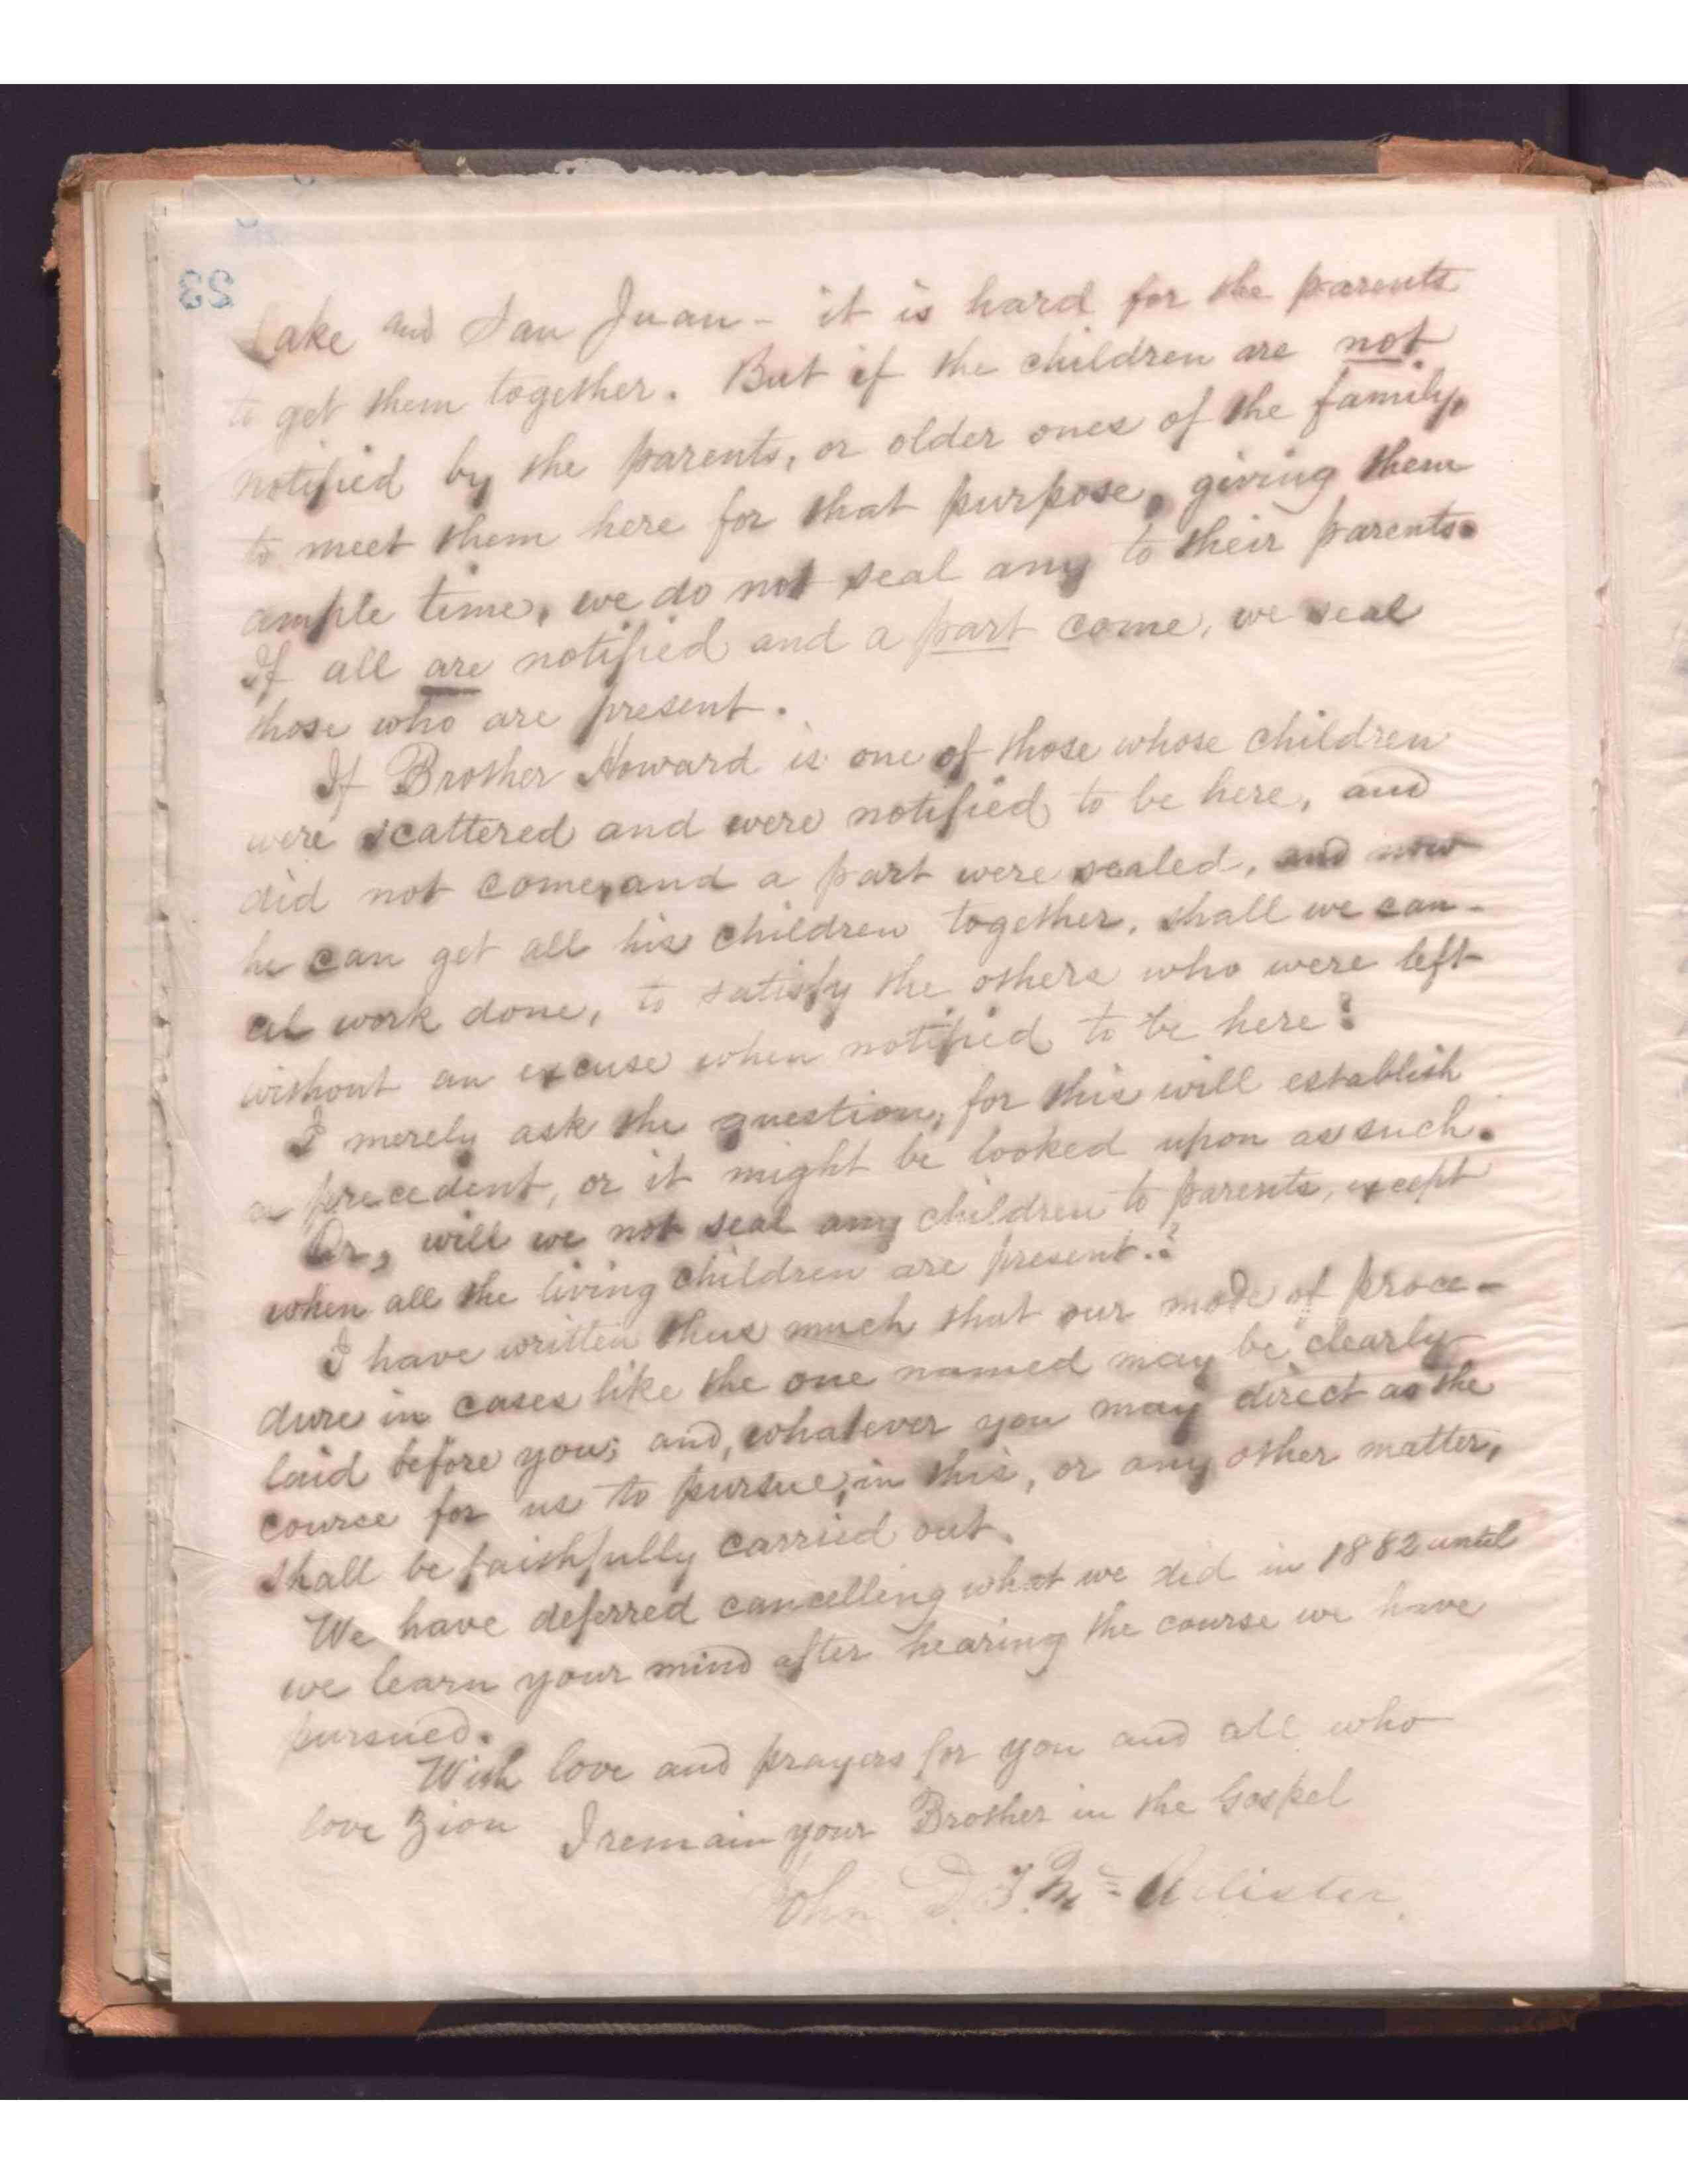 23
Lake and San Juan - it is hard for the parents
to get them together. But if the children are not
notified by the parents, or older ones of the family,
to meet them here for that purpose, giving them
ample time, we do not seal any to their parents.
If all are notified and a part come, we seal
those who are present.
If Brother Howard is one of those whose children
were scattered and were notified to be here, and
did not come, and a part were sealed, and now
he can get all his children together, shall we can-
cel work done, to satisfy the others who were left
without an excuse when notified to be here?
I merely ask the question, for this will establish
a precedent, or it might be looked upon as such.
Or, will we not seal any children to parents, except
when all the living children are present.?
I have written thus much that our mode of proce-
dure in cases like the one named may be clearly
laid before you; and, whatever you may direct as the
course for us to pursue, in this, or any other matter,
shall be faithfully carried out.
We have deferred cancelling what we did in 1882 until
we learn your mind after hearing the course we have
pursued.
With love and prayers for you and all who
love Zion I remain your Brother in the Gospel
John D. T. Mc Allister